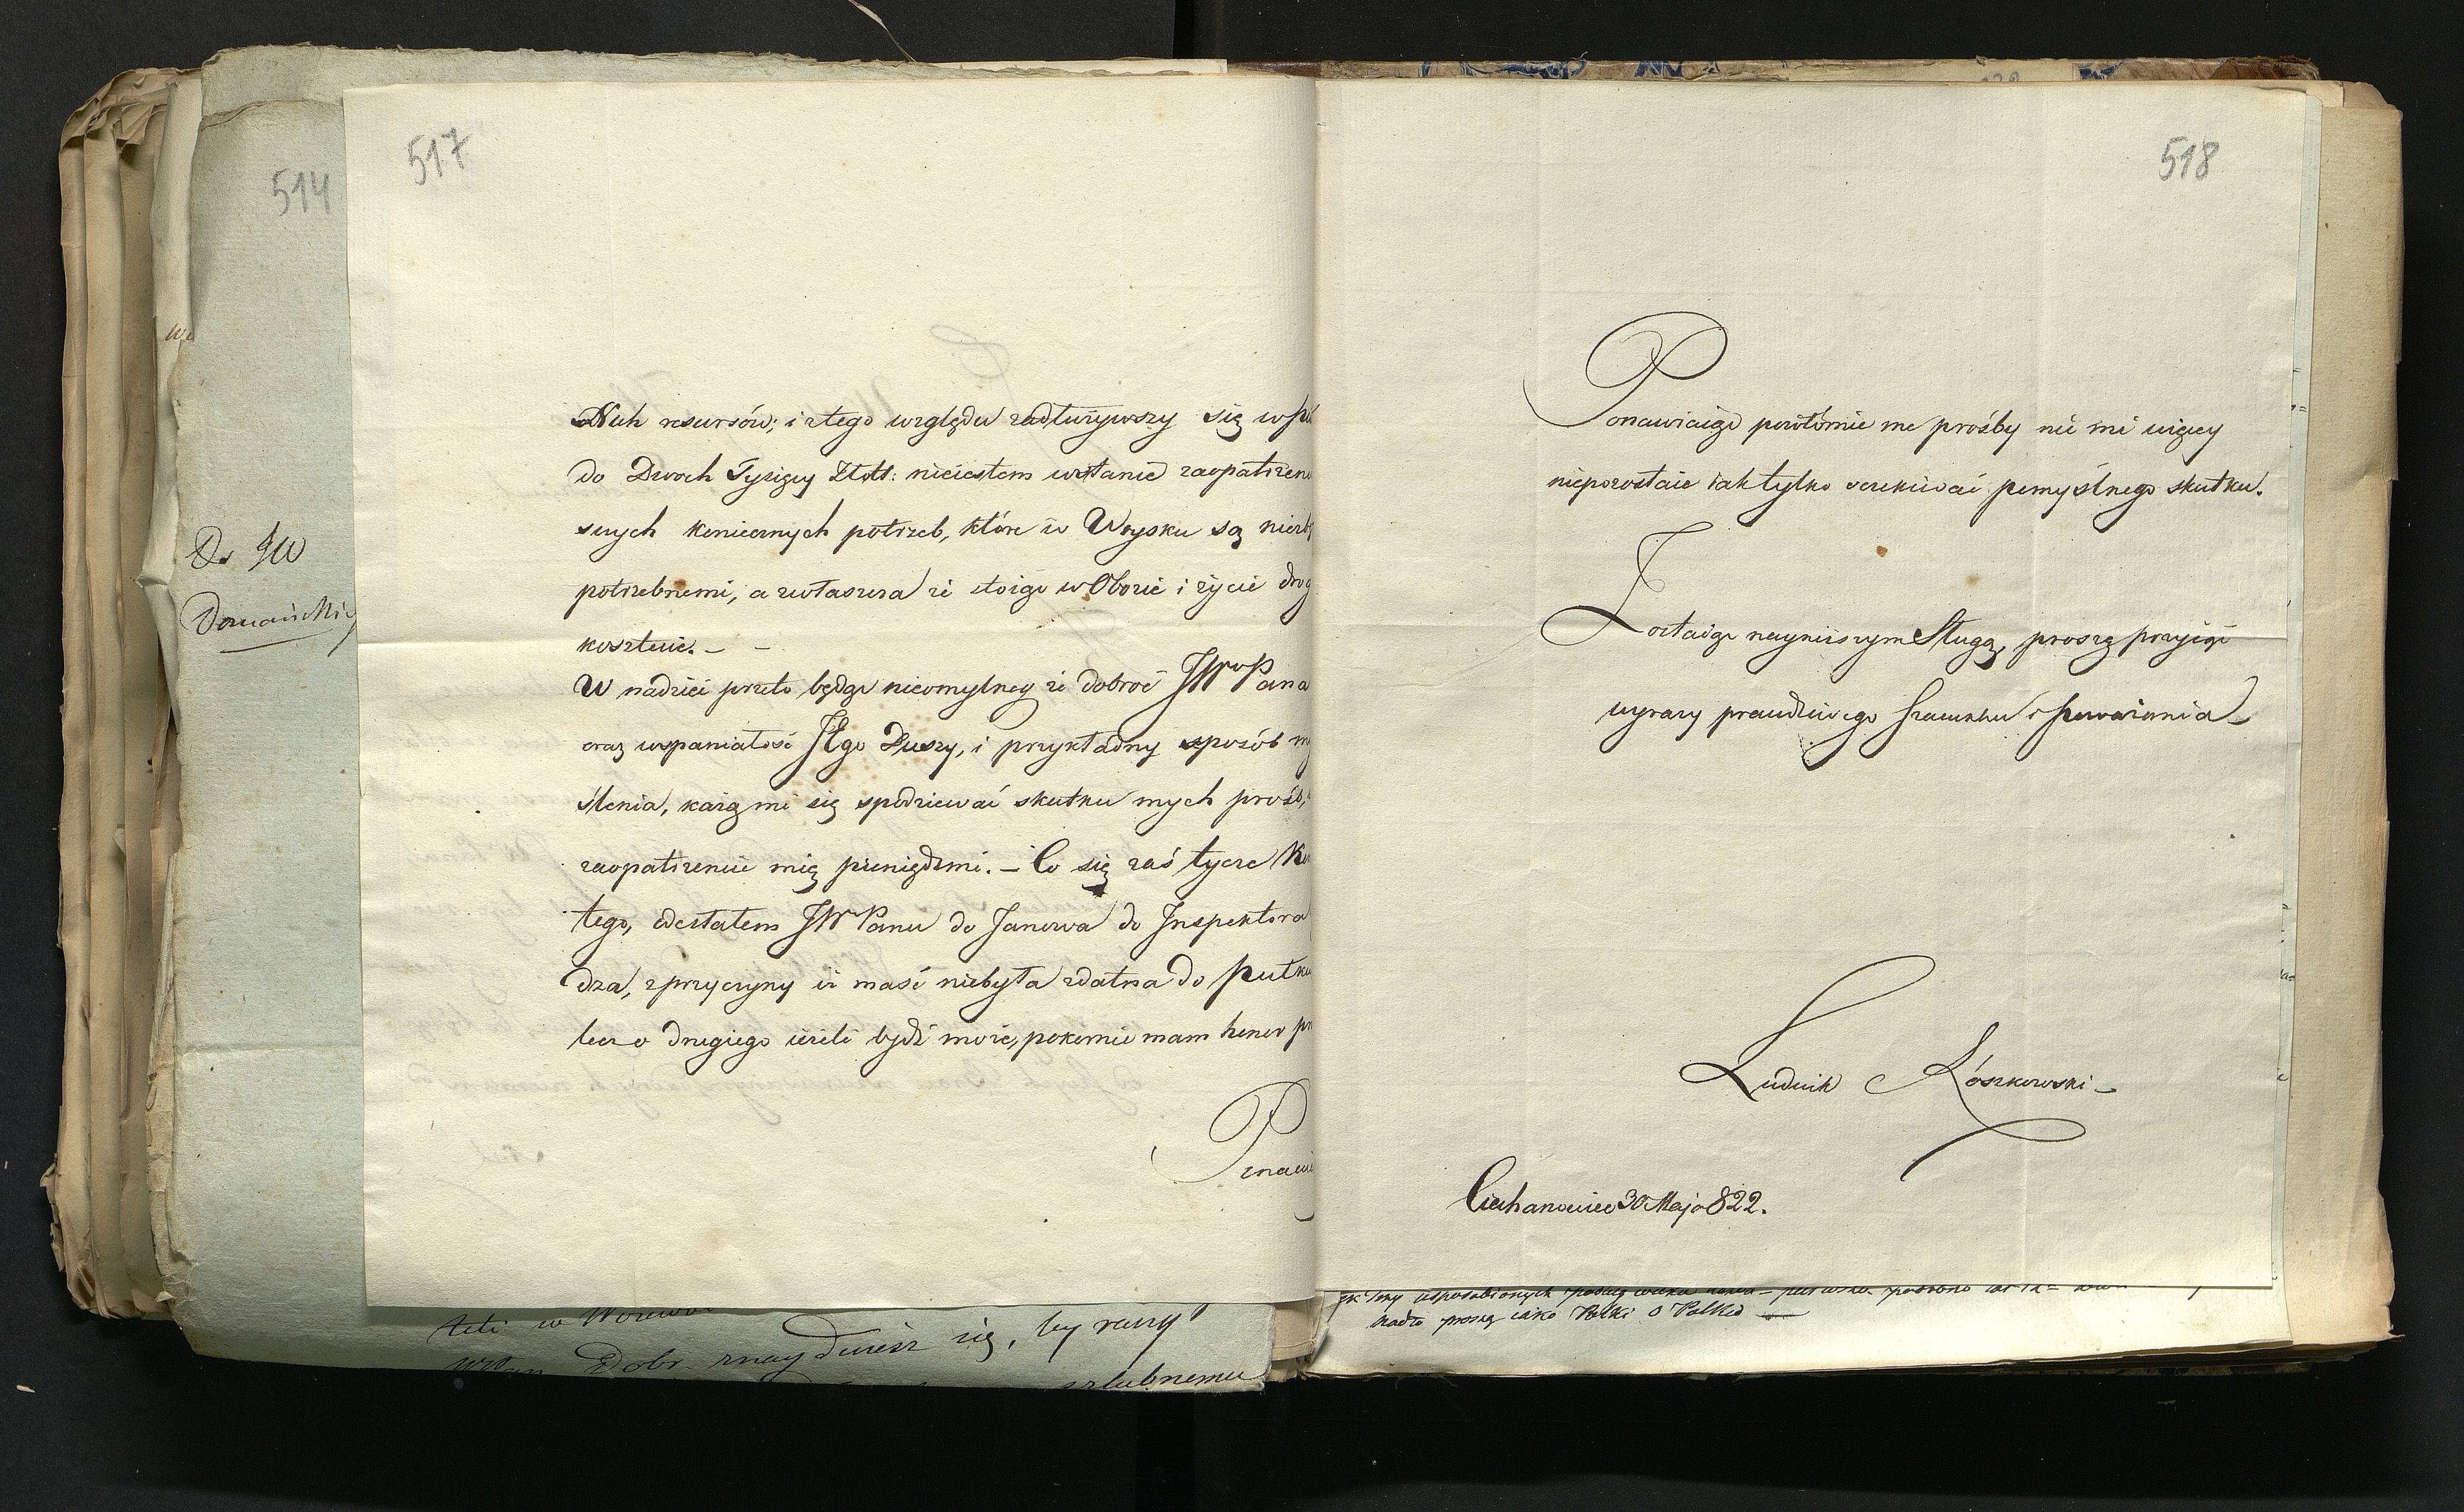 517
514
Do JW
Domański
Nich resursów; i z tego względu zadłużywszy się w Pó
do Dwoch Tysięcy Złott: nieiestem wstanie zaopatrzen
swych koniecznych potrzeb, które w Woysku są niezb
potrzebnemi, a zwłaszcza że stoiąc w Obozie i życie drog
kosztuie. – –
W nadziei przeto będąc nieomylney że dobroć JWPana
oraz wspaniałość JEgo Duszy, i przykładny sposób my
ślenia, każą mi się spodziewać skutku mych prośb,
zaopatrzenie mię pieniędzmi. – Co się zaś tycze Ko
tego, odesłałem JWPanu do Janowa do Inspektora
dza, z przyczyny iż maść niebyła zdatna do Pułku
lecz o drugiego ieżeli bydź może, pokornie mam honor pr
Ponawi
teli w
WPan Dobr. znayduiesz się, by raczy
518
Ponawiaiąc powtórnie me prośby nic mi więcy
niepozostaie iak tylko oczekiwać pomyślnego skutku.
Zostaiąc nayniższym Sługą, proszę przyiąć
wyrazy prawdziwego szacunku i poważania
Ludwik Kószkowski –
Ciechanowiec 30 Maja 822.
nadto proszę iako Polki o Polkę